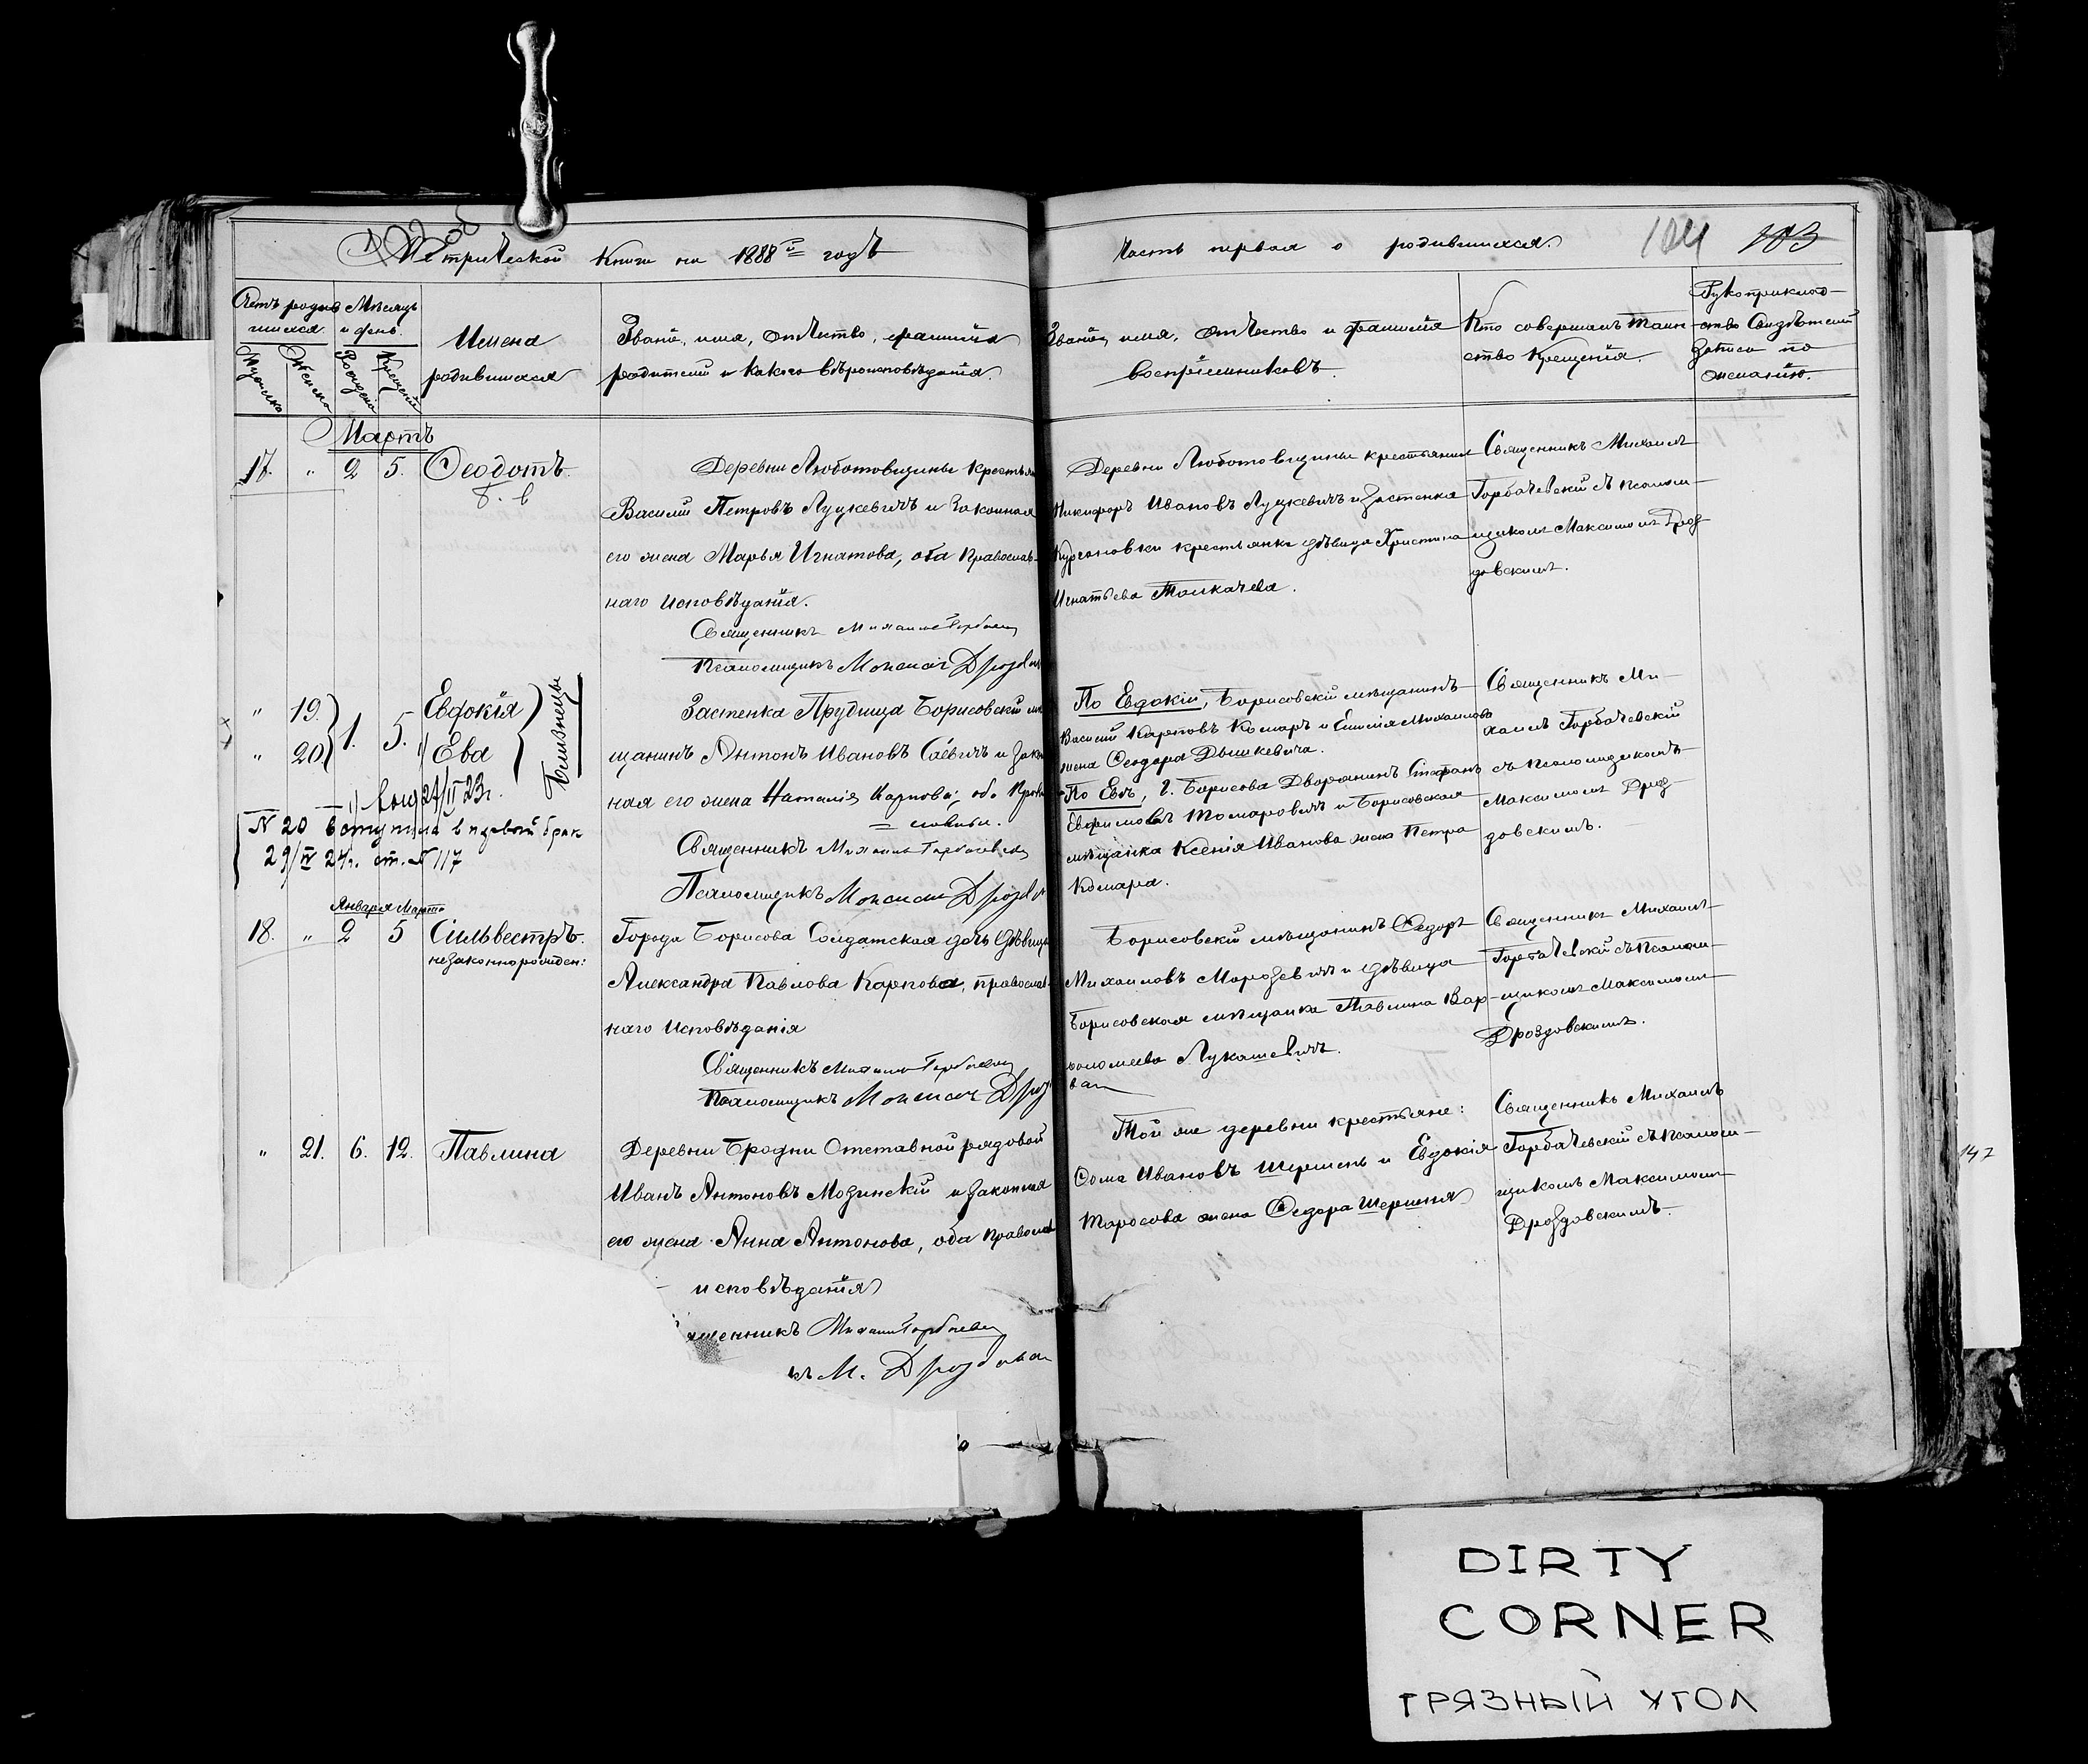 Метрической книги на 1888й годъ
Часть первая о родившихся.
184 183
Счетъ родившихся.
Мѣсяцъ и день.
Мужеска
Женска
Рожденія
Крещенія
Имена
родившихся
Званіе, имя, отчество, фамилія
родителей и какого вѣроисповѣданія.
Званіе, имя, отчество и фамилія
воспріемниковъ.
Кто совершалъ таин-
ство крещенія.
Рукоприклад-
ство свидѣтелей
записи по
желанію.
Мартъ
17. " 2 5. Ѳеодотъ
Деревни Люботовщины крестьян
Василій Петровъ Луцкевичъ и законная
его жена Марья Игнатова, оба православ-
наго исповѣданія.
Священникъ Михаилъ Горбачев
Псаломщикъ Максим Дроздов
Деревни Люботовщины крестьянинъ
Никифоръ Ивановъ Луцкевичъ и застенка
крестьянка дѣвица Христина
Игнатьева Толкачева.
Священникъ Михаилъ
Горбачевскій съ псалом-
щикомъ Максимомъ Дроз-
довскимъ.
" 19.
" 20.
1. 5.
Евдокія
Ева
Близнецы
24/II 23г.
N 20 вступила в первый брак
29/IV 24г. ст. N 117
Застенка Прудища Борисовскій мѣ
щанинъ Антонъ Ивановъ Саевичъ и закон
ная его жена Наталія Карпова, оба право
славны.
Священникъ Михаилъ Горбачевскій
Псаломщикъ Максим Дроздов
По Евдокіи, Борисовскій мѣщанинъ
Василій Карповъ Комаръ и Михаилова
жена Ѳеодора Дышкевича.
По Евѣ, г. Борисова Дворянинъ Стефанъ
Евфимовъ Томаровичъ и Борисовская
мѣщанка Ксенія Иванова жена Петра
Комара.
Священникъ Ми-
хаилъ Горбачевскій
съ псаломщикомъ
Максимомъ Дроз-
довскимъ.
Января Марта
18. " 2 5 Сильвестръ
незаконнорожден:
Города Борисова Солдатская дочь дѣвица
Александра Павлова Карпова, православ-
наго исповѣданія
Священникъ Михаилъ Горбачевскій
Псаломщикъ Максим Дроз
Борисовскій мѣщанинъ Ѳедоръ
Михаиловъ Морозевичъ и дѣвица
Борисовская мѣщанка Павлина Вар-
ѳоломеева Лукашевичъ.
Священникъ Михаилъ
Горбачевскій съ псалом-
щикомъ Максимомъ
Дроздовскимъ.
" 21. 6. 12. Павлина
Деревни Бродни Отставной рядовой
Иванъ Антоновъ Мозинскій и законная
его жена Анна Антонова, оба православ
исповѣданія
щенникъ Михаилъ Горбачевскій
къ М. Дроздовск
Той же деревни крестьяне:
Ѳома Ивановъ Шершень и Евдокія
Тарасова жена Ѳедора Шершня
Священникъ Михаилъ
Горбачевскій съ псалом-
щикомъ Максимомъ
Дроздовскимъ.
147
DIRTY
CORNER
ГРЯЗНЫЙ УГОЛ